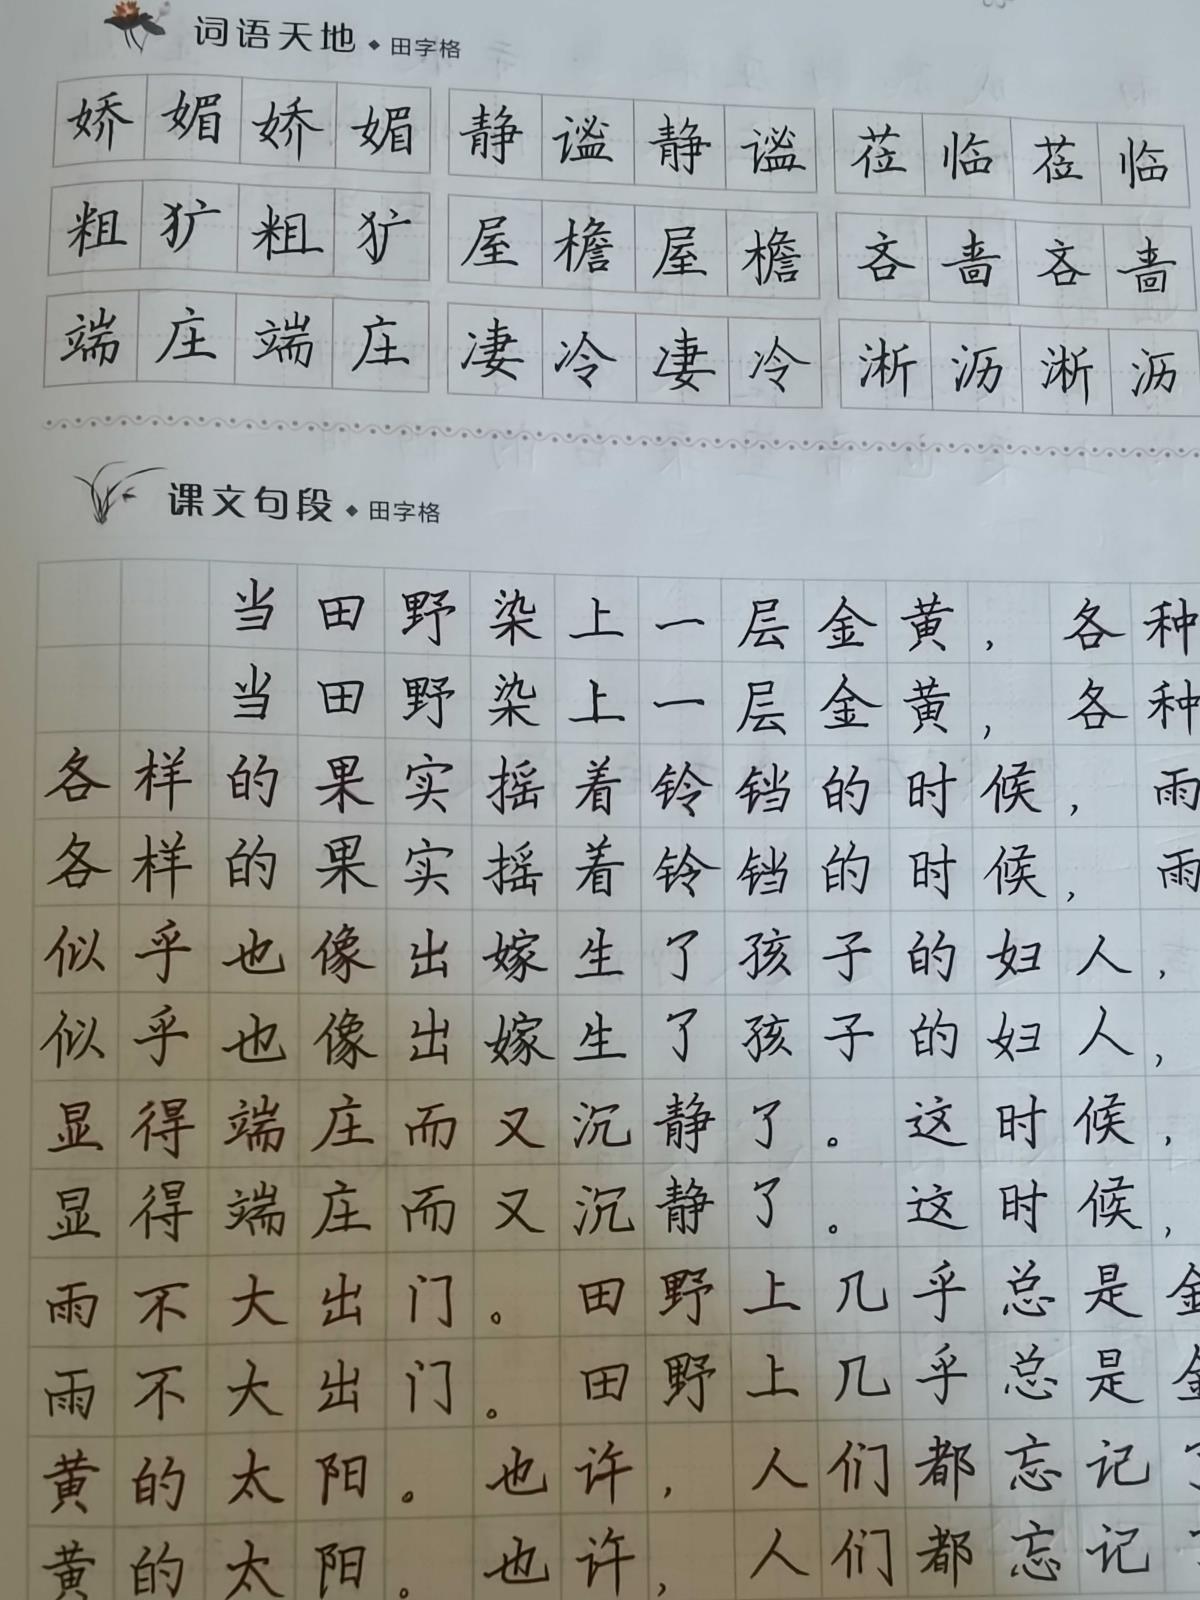 词语天地◆田字格
娇媚娇媚 静谧静谧 莅临莅临
粗犷粗犷 屋檐屋檐 吝啬吝啬
端庄端庄 凄冷凄冷 淅沥淅沥
课文句段◆田字格
当田野染上一层金黄，各种
当田野染上一层金黄，各种
各样的果实摇着铃铛的时候，雨
各样的果实摇着铃铛的时候，雨
似乎也像出嫁生了孩子的妇人，
似乎也像出嫁生了孩子的妇人，
显得端庄而又沉静了。这时候，
显得端庄而又沉静了。这时候，
雨不大出门。田野上几乎总是金
雨不大出门。田野上几乎总是金
黄的太阳。也许，人们都忘记了
黄的太阳。也许，人们都忘记了